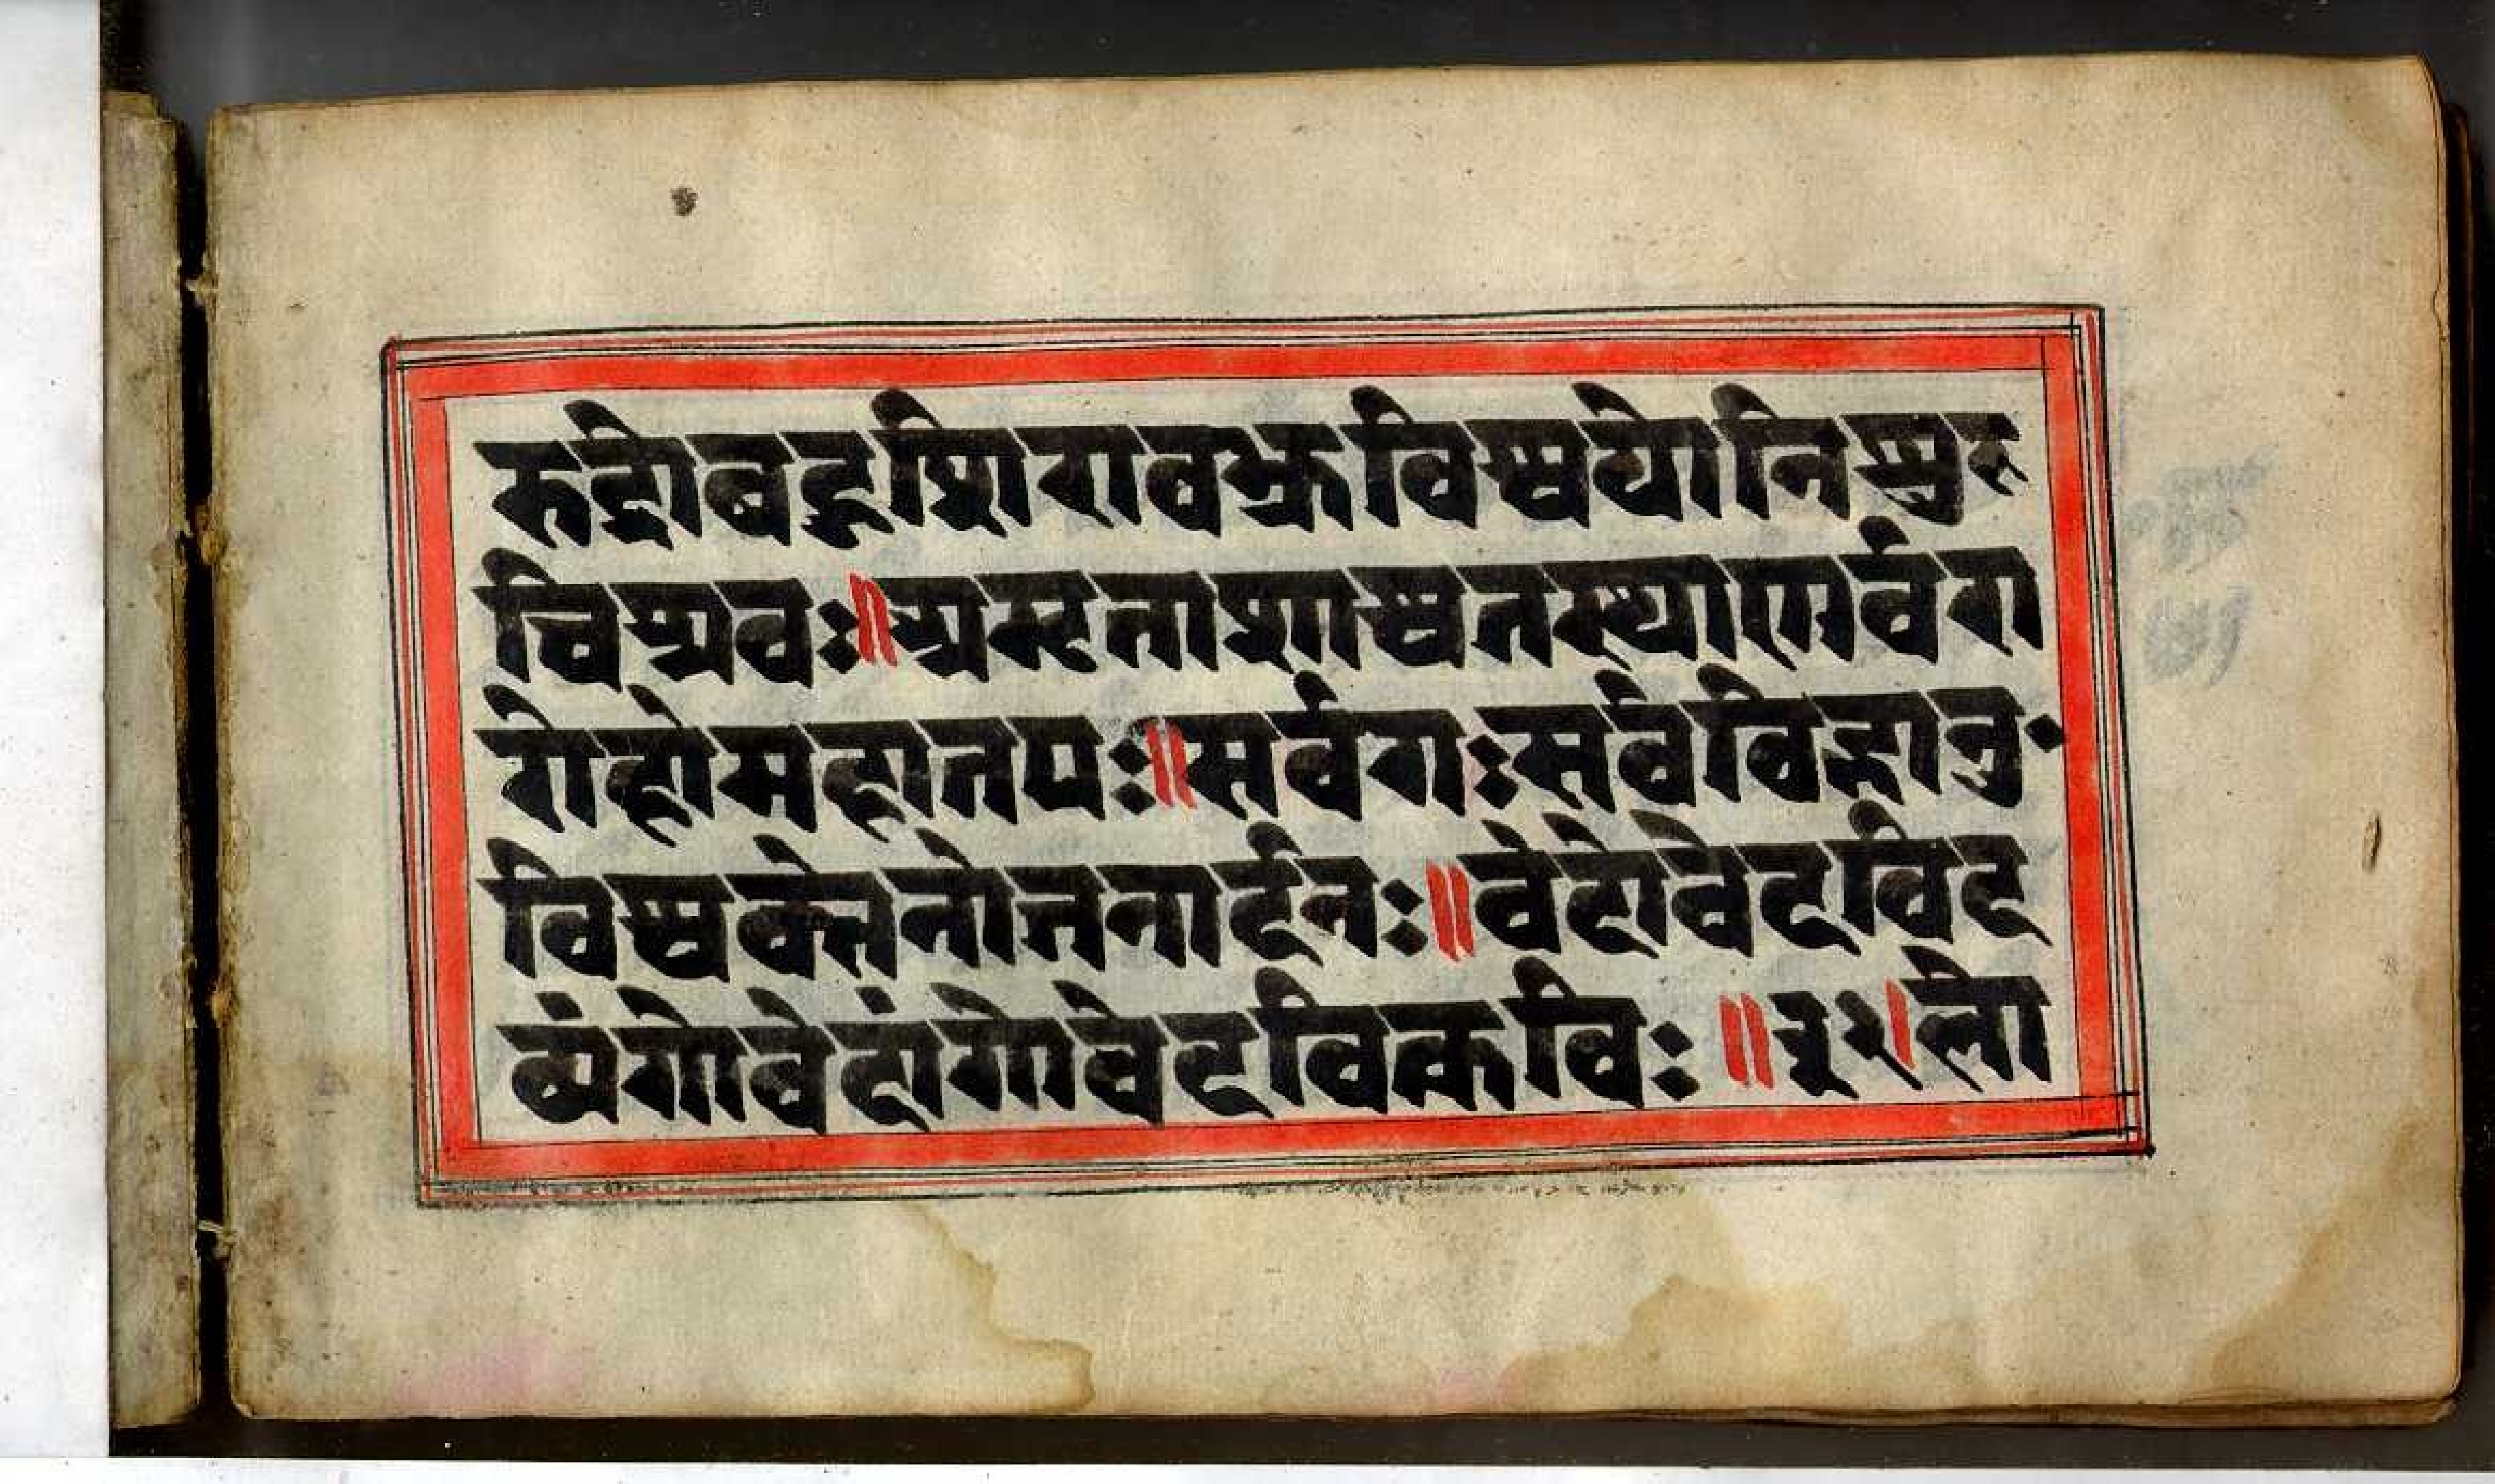 रुद्रोबहुशिराबभ्रुर्विश्वयोनिश्शु
चिश्रवः॥अमृतताशाश्वतस्थाणुर्वरा
रोहोमहातपः॥सर्वगःसर्वविद्भानु
विश्वक्सेनोजनार्दनः॥वेदोवेदविद
व्यंगोवेदांगोवेदवित्कविः॥३२।लो